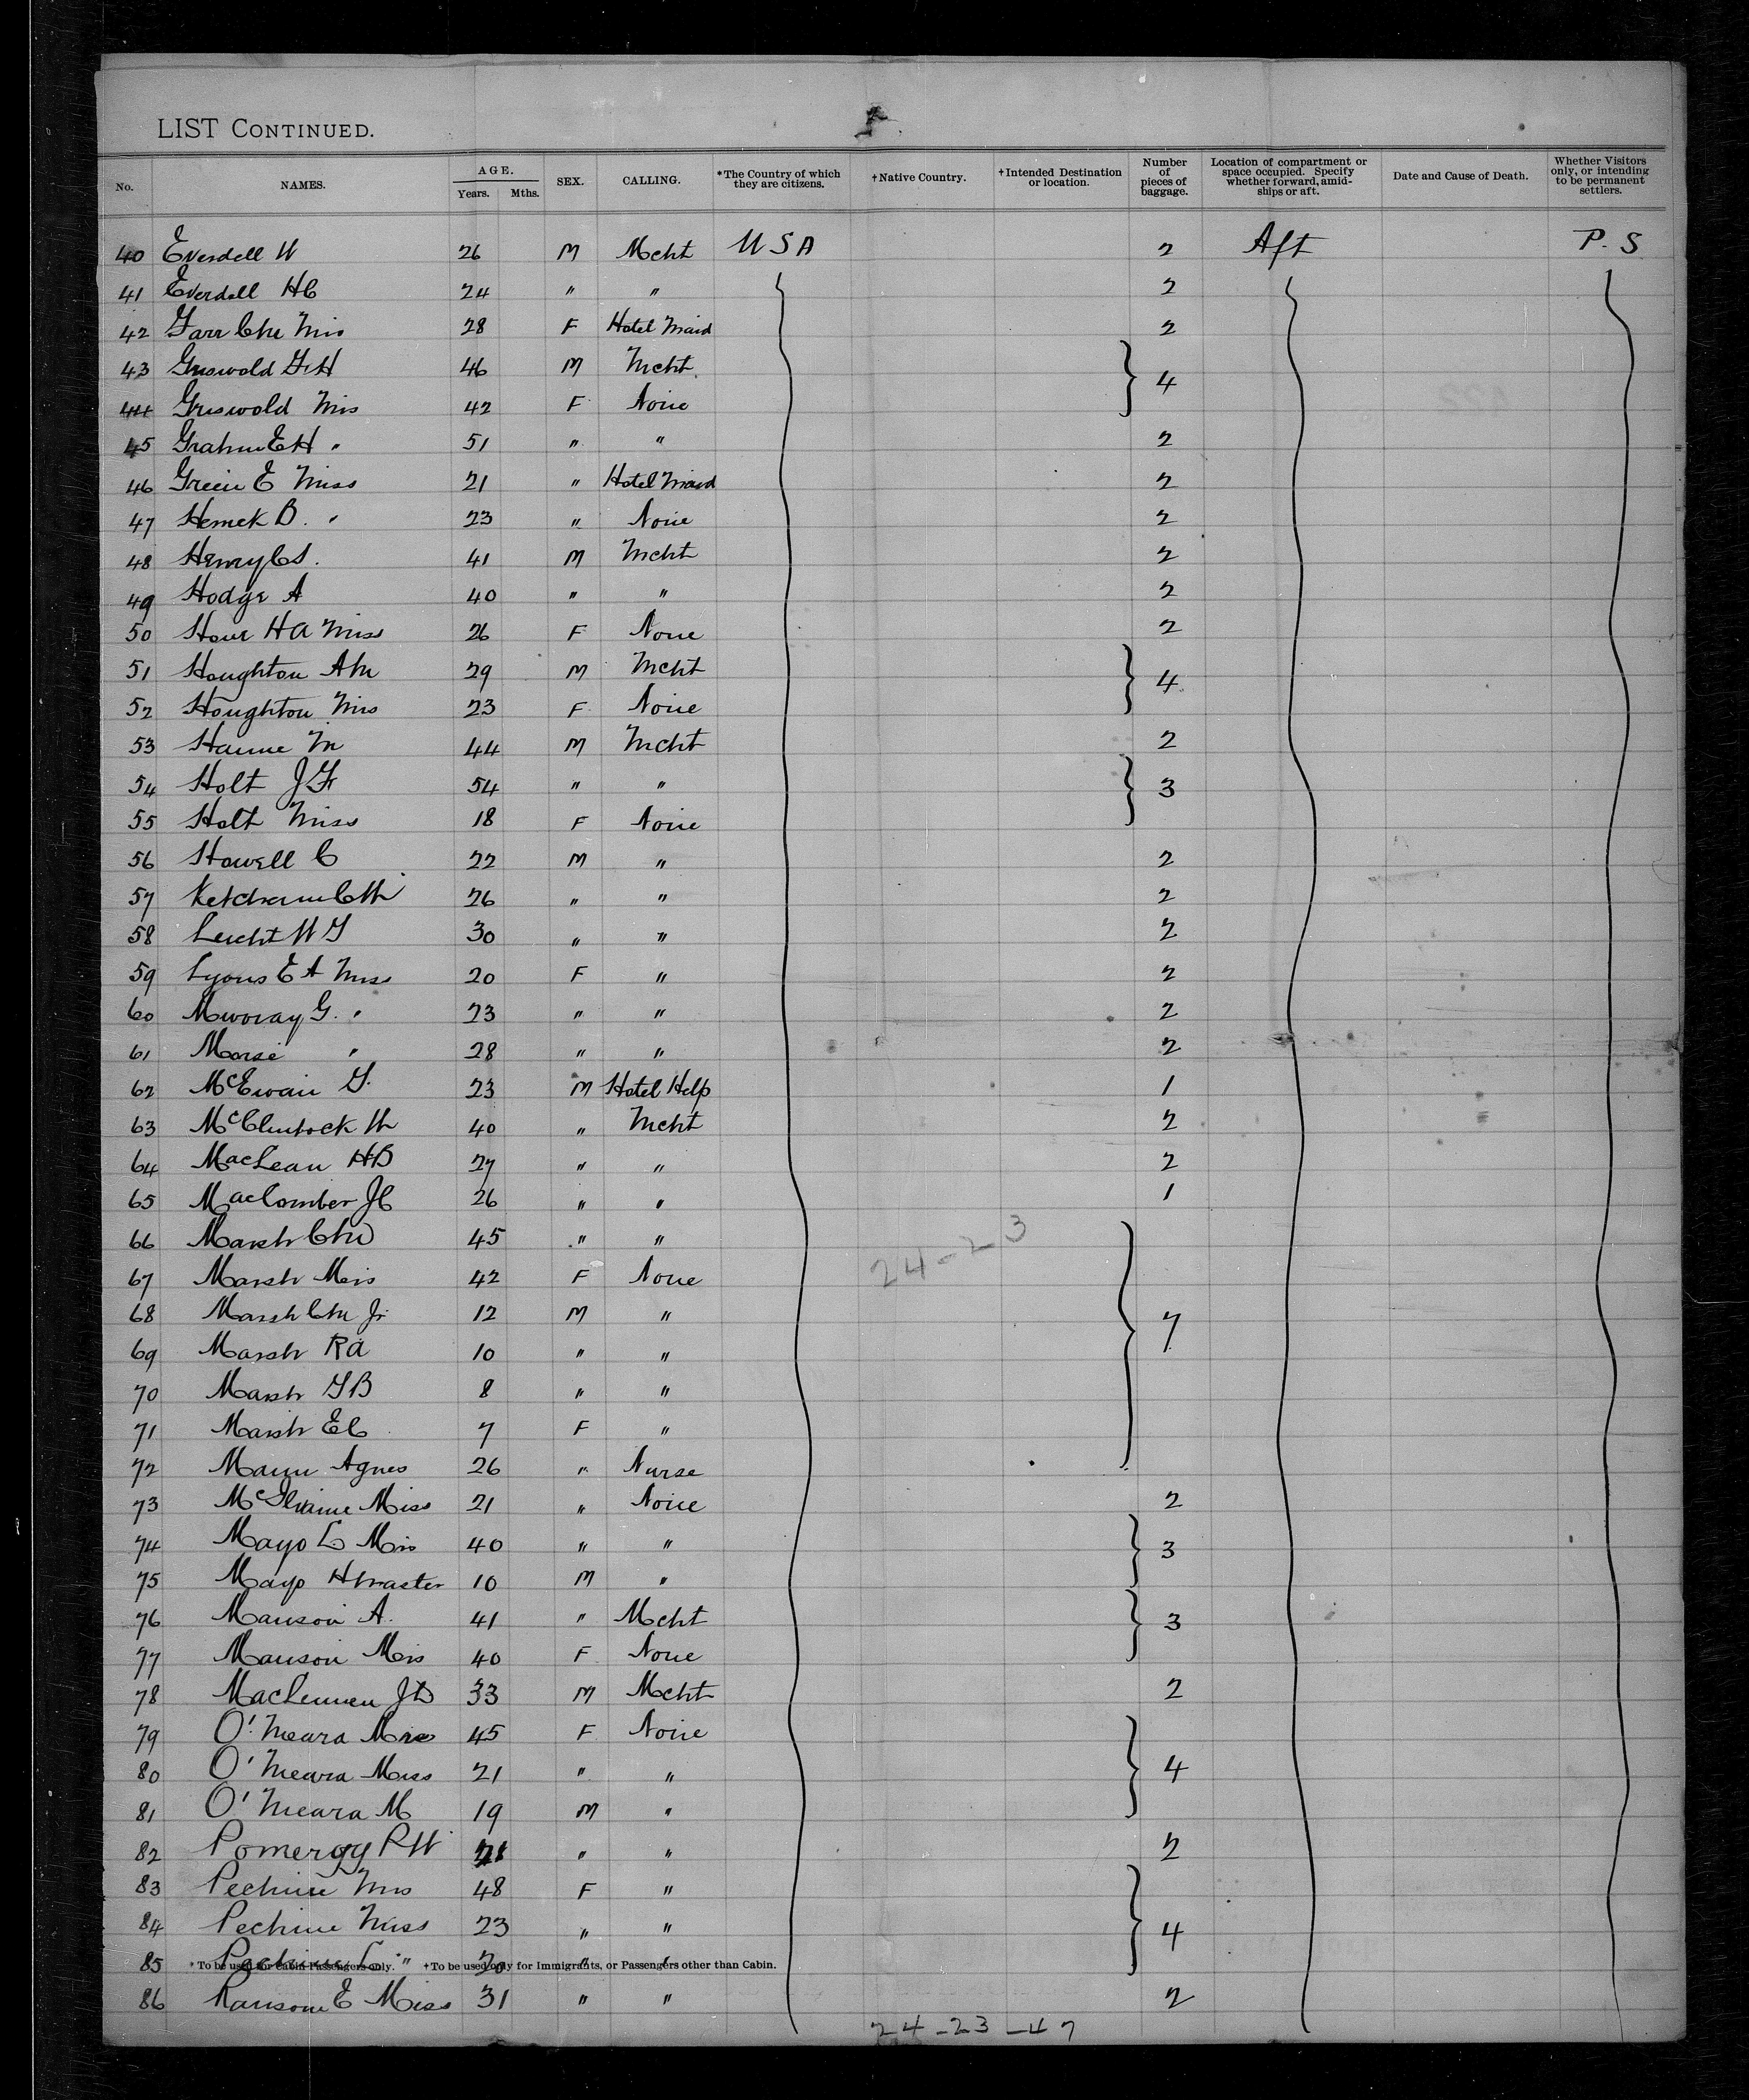 LIST CONTINUED.
No. NAMES. AGE. Years. Mths. SEX. CALLING. *The Country of which they are citizens. †Native Country. †Intended Destination or location. Number of pieces of baggage. Location of compartment or space occupied. Specify whether forward, amidships or aft. Date and Cause of Death. Whether Visitors only, or intending to be permanent settlers.
40 Everdell W 26 M Mcht USA 2 Aft P. S
41 Everdell HC 24 " " 2
42 Farr Miss 28 F Hotel Maid 2
43 Griswold F H 46 M Mcht
44 Griswold Mrs 42 F None } 4
45 E H " 51 " " 2
46 Green E Miss 21 " Hotel Maid 2
47 B. " 23 " None 2
48 Henry C S. 41 M Mcht 2
49 Hodge A 40 " " 2
50 H A Miss 26 F None 2
51 Houghton A M 29 M Mcht
52 Houghton Mrs 23 F None } 4
53 M 44 M Mcht 2
54 Holt J F 54 " "
55 Holt Miss 18 F None } 3
56 Howell C 22 M " 2
57 Ketcham 26 " " 2
58 Leicht W G 30 " " 2
59 Lyons E A Miss 20 F " 2
60 G. " 23 " " 2
61 Morse " 28 " " 2
62 McEwain G. 23 M Hotel Help 1
63 McClintock 40 " Mcht 2
64 MacLean HB 27 " " 2
65 MacComber J C 26 " " 1
66 Marsh 45 " "
24-23
67 Marsh Mrs 42 F None
68 Marsh Jr 12 M "
69 Marsh R A 10 " " } 7
70 Marsh G B 8 " "
71 Marsh E C 7 F "
72 Mann Agnes 26 " Nurse
73 McIlvaine Miss 21 " None 2
74 Mayo L. Mrs 40 " "
75 Mayo H Master 10 M " } 3
76 Manson A. 41 " Mcht
77 Manson Mrs 40 F None } 3
78 MacLennen J D 33 M Mcht 2
79 O'Meara Mrs 45 F None
80 O'Meara Miss 21 " " } 4
81 O'Meara M 19 M "
82 Pomeroy P W " " 2
83 Pechine Mrs 48 F "
84 Pechine Miss 23 " " } 4
85 Pechine L. " 20 " "
* To be used for Cabin Passengers only. †To be used only for Immigrants, or Passengers other than Cabin.
86 Ransom E Miss 31 " " 2
24-23-47